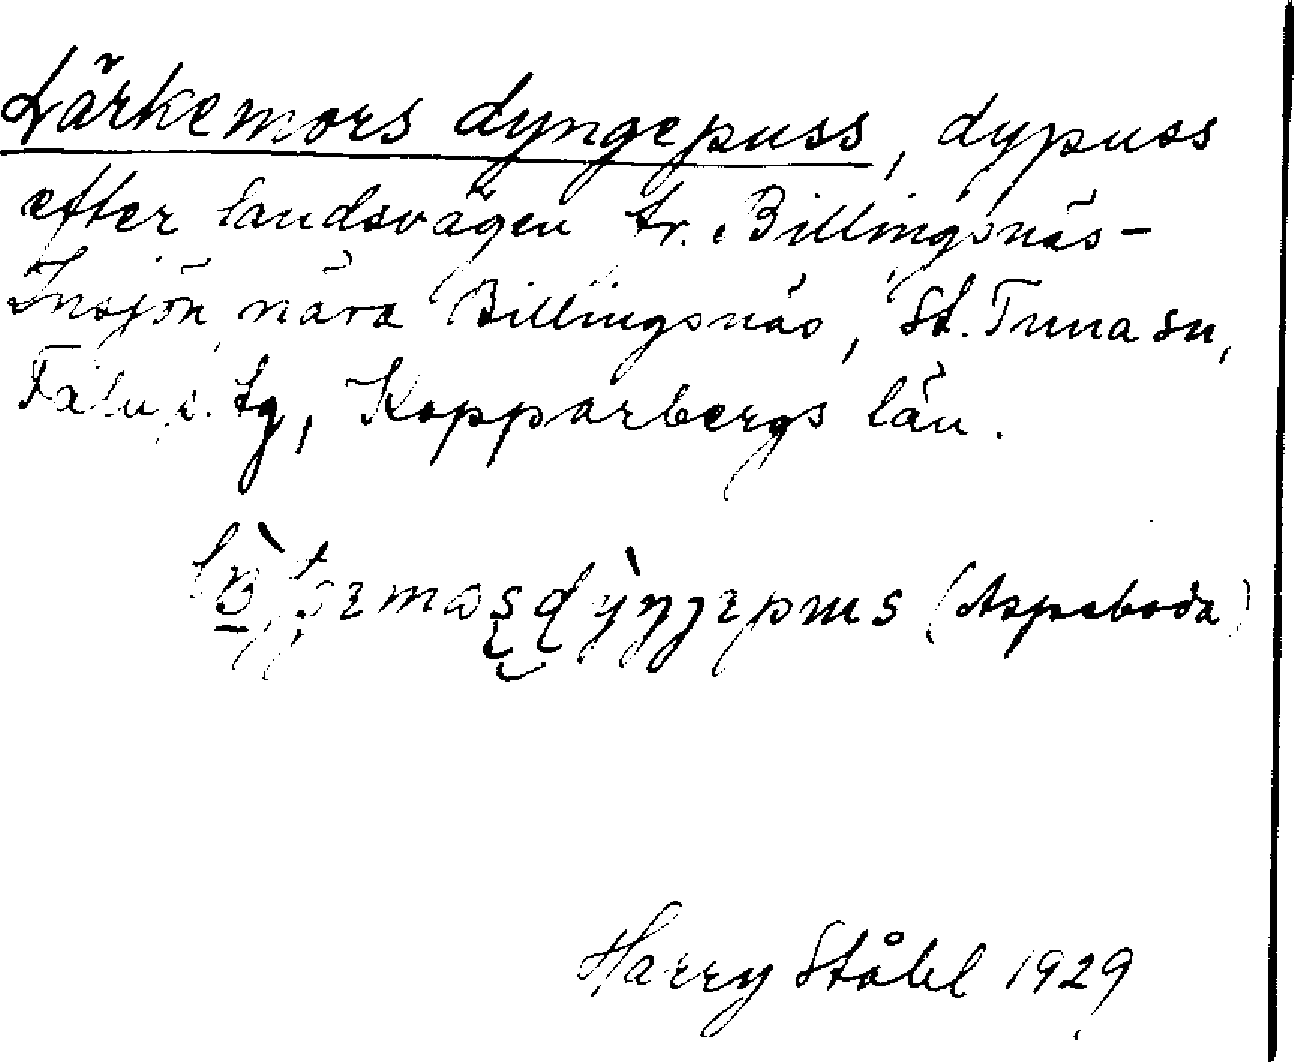 Lärkemors dyngepuss, dypuss
efter landsvägen fr. Billingsnäs-
Insjön nära Billingsnäs, St. Tuna sn,
Falu s. tg, Kopparbergs län.
(Aspeboda)
Harry Ståhl 1929